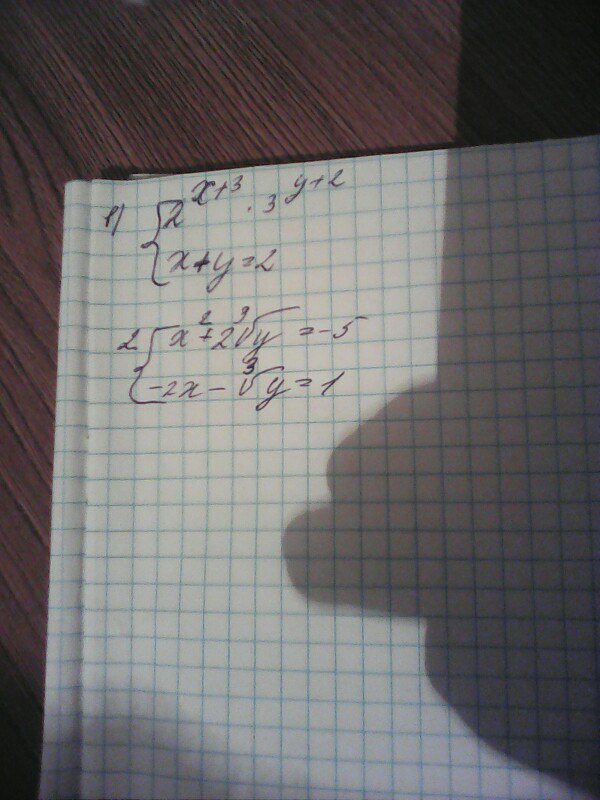 1) { 2^(x+3) · 3^(y+2)
x+y=2
2 { x²+2∛y=-5
-2x-∛y=1